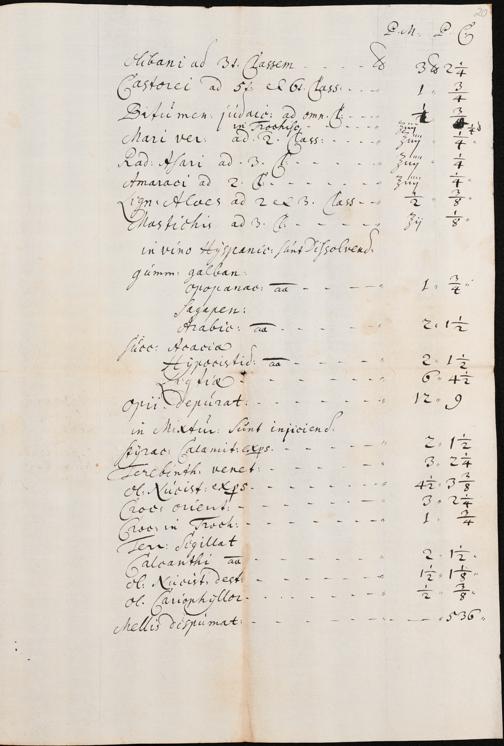 20
P. M. P. C
Olibani ad 3t. Classem - - - - ℔ 3 ℔ 2 1/4
Castorei ad 5t. et 6t. Class. - - - 1 " 3/4
Bitumen: judaic: ad omn. C. - - -
in Trochisc.
Mari ver: ad 2. Class: - - - ʒiij 1/4
Rad: Asari ad 3. C. - - - 1/4
Amaraci ad 2. C. - - - 1/4
Lign: Aloes ad 2 et 3. Class - - 1/2 " 3/8
Mastichis ad 3. C. - - - ʒij 1/8
in vino Hyspanic: sunt Dissolvend.
gumm: galban:
opopanac: aa - - - 1 " 3/4
Sagapen:
Arabic: aa - - - 2 " 1 1/2
succ: Acaciæ
Hypocistid: aa - - - 2 " 1 1/2
- - - 6 " 4 1/2
opii depurat: - - - 12 " 9
in Mixtur: sunt injiciend.
Styrac: Calamit: exps. - - - 2 " 1 1/2
Terebinth: venet: - - - 3 " 2 1/4
ol: Nucist: exps - - - 4 1/2 " 3 3/8
Croc: orient: - - - 3 " 2 1/4
Croc: in Troch: - - - 1 " 3/4
Terr: Sigillat
Calcanthi aa - - - 2 " 1 1/2
ol: Nucist: dest: - - - 1 1/2 " 1 1/8
ol: Cariophyllor: - - - 1/2 " 3/8
Mellis dispumat: - - - 536 "